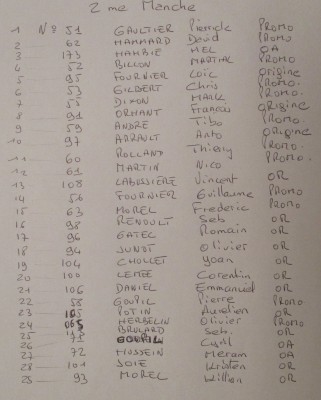 2 me Manche
1 N° 51 GAULTIER Pierrick PROMO
2 62 HAMMARD David PROMO
3 173 MAHBIE MEL OA
4 52 BILLON MARTIAL PROMO
5 95 FOURNIER Loïc ORigine
6 53 GILBERT Chris PROMO.
7 55 DIXON MARK PROMO
8 91 ORHANT Francois ORIGINE
9 59 ANDRE Tibo PROMO
10 97 ARRAULT Anto ORigine
11 60 ROLLAND Thierry PROMO.
12 61 MARTIN Nico PROMO.
13 108 LABUSSIERE Vincent OR
14 56 FOURNIER Guillaume PROMO
15 63 MOREL Frederic PROMO
16 98 RENOULT Seb OR
17 96 GATEL Romain OR
18 94 JUNOT Olivier OR
19 104 CHOLLET Yoan OR
20 100 LEMEE Corentin OR
21 106 DANIEL Emmanuel OR
22 58 GOUPIL Pierre PROMO
23 POTIN Aurélien OR
24 HERBELIN Olivier PROMO
25 BRULARD Seb. OR
26 71 Cyril OA
27 72 HUSSEIN Meram OA
28 101 JOIE OR
93 MOREL Willien OR